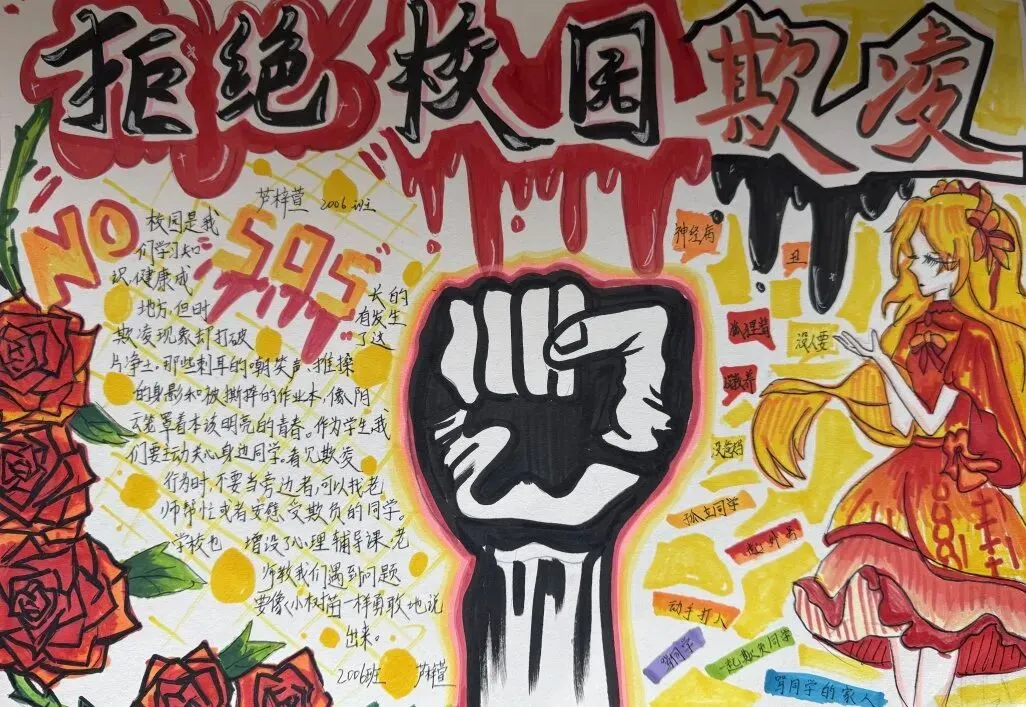 拒绝校园欺凌
芦梓萱 2006班
NO
SOS
校园是我
们学习知
识、健康成
长的
地方,但时
有发生
欺凌现象却打破
了这
片净土,那些刺耳的嘲笑声、推搡
的身影和被撕碎的作业本,像阴
云笼罩着本该明亮的青春。作为学生我
们要主动关心身边同学,看见欺凌
行为时,不要当旁边者,可以找老
师帮忙或者安慰受欺负的同学。
学校也 增设了心理辅导课,老
师教我们遇到问题
要像小树苗一样勇敢地说
出来。
2006班 芦梓萱
神经病
丑
没人要
没爸妈
孤立同学
动手打人
骂同学
一起欺负同学
骂同学的家人